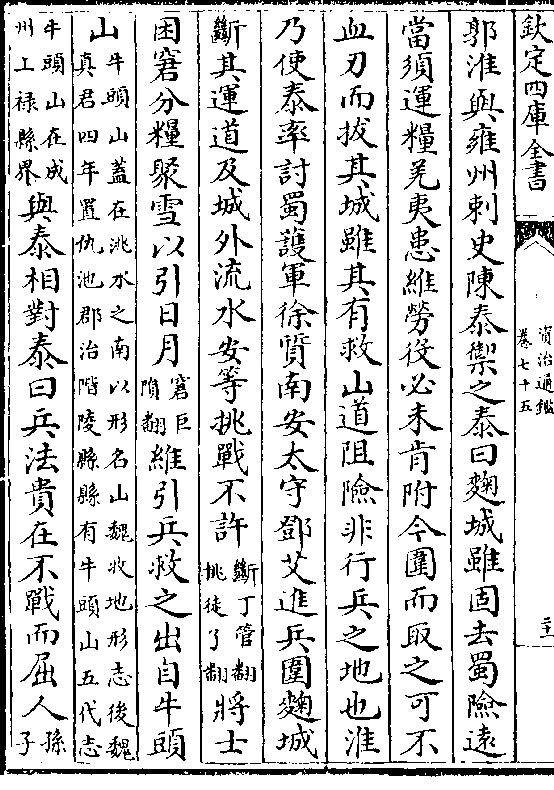 欽定四庫全書
資治通鑑
卷七十五
郭淮與雍州刺史陳泰禦之泰曰麴城雖固去蜀險遠
當須運糧羌夷患維勞役必未肯附今圍而取之可不
血刃而拔其城雖其有救山道阻險非行兵之地也淮
乃使泰率討蜀護軍徐質南安太守鄧艾進兵圍麴城
斷其運道及城外流水安等挑戰不許斷丁管翻挑徒了翻將士
困窘分糧聚雪以引日月窘巨隕翻維引兵救之出自牛頭
山牛頭山蓋在洮水之南以形名山魏收地形志後魏真君四年置仇池郡治階陵縣縣有牛頭山五代志
牛頭山在成州上禄縣界與泰相對泰曰兵法貴在不戰而屈人孫子